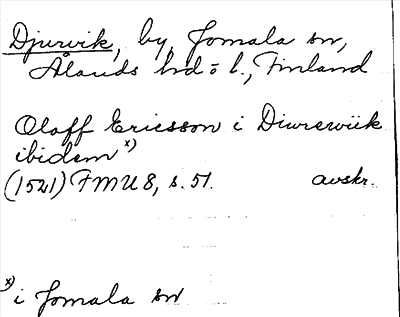 Djurvik, by, Jomala sn,
Ålands hd o l., Finland
Olaff Ericsson i Diwrewiik
ibidem x)
(1521) FMU 8, s. 51. avskr.
x) i Jomala sn